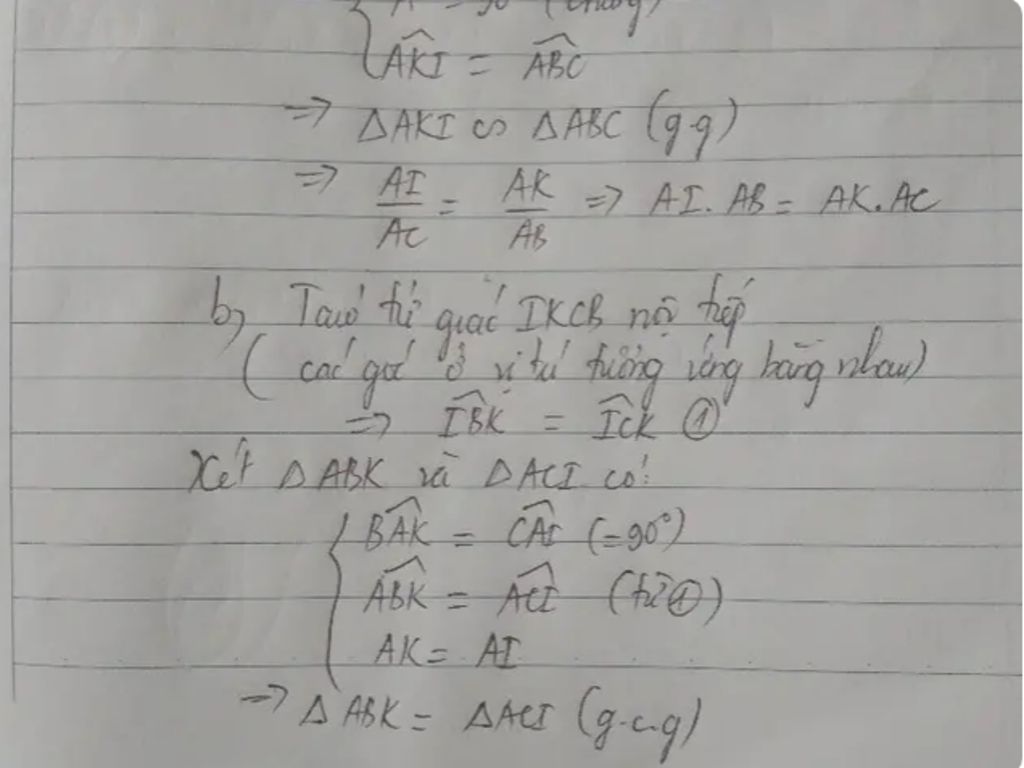 A = 90° (chung)
AKI = ABC
=> ΔAKI ∽ ΔABC (g.g)
=> AI/AC = AK/AB => AI. AB = AK.AC
b, Ta có tứ giác IKCB nội tiếp
( các góc ở vị trí tương ứng bằng nhau)
=> IBK = ICK ①
Xét ΔABK và ΔACI có:
BAK = CAI (=90°)
ABK = ACI (từ ①)
AK = AI
=> Δ ABK = ΔACI (g.c.g)